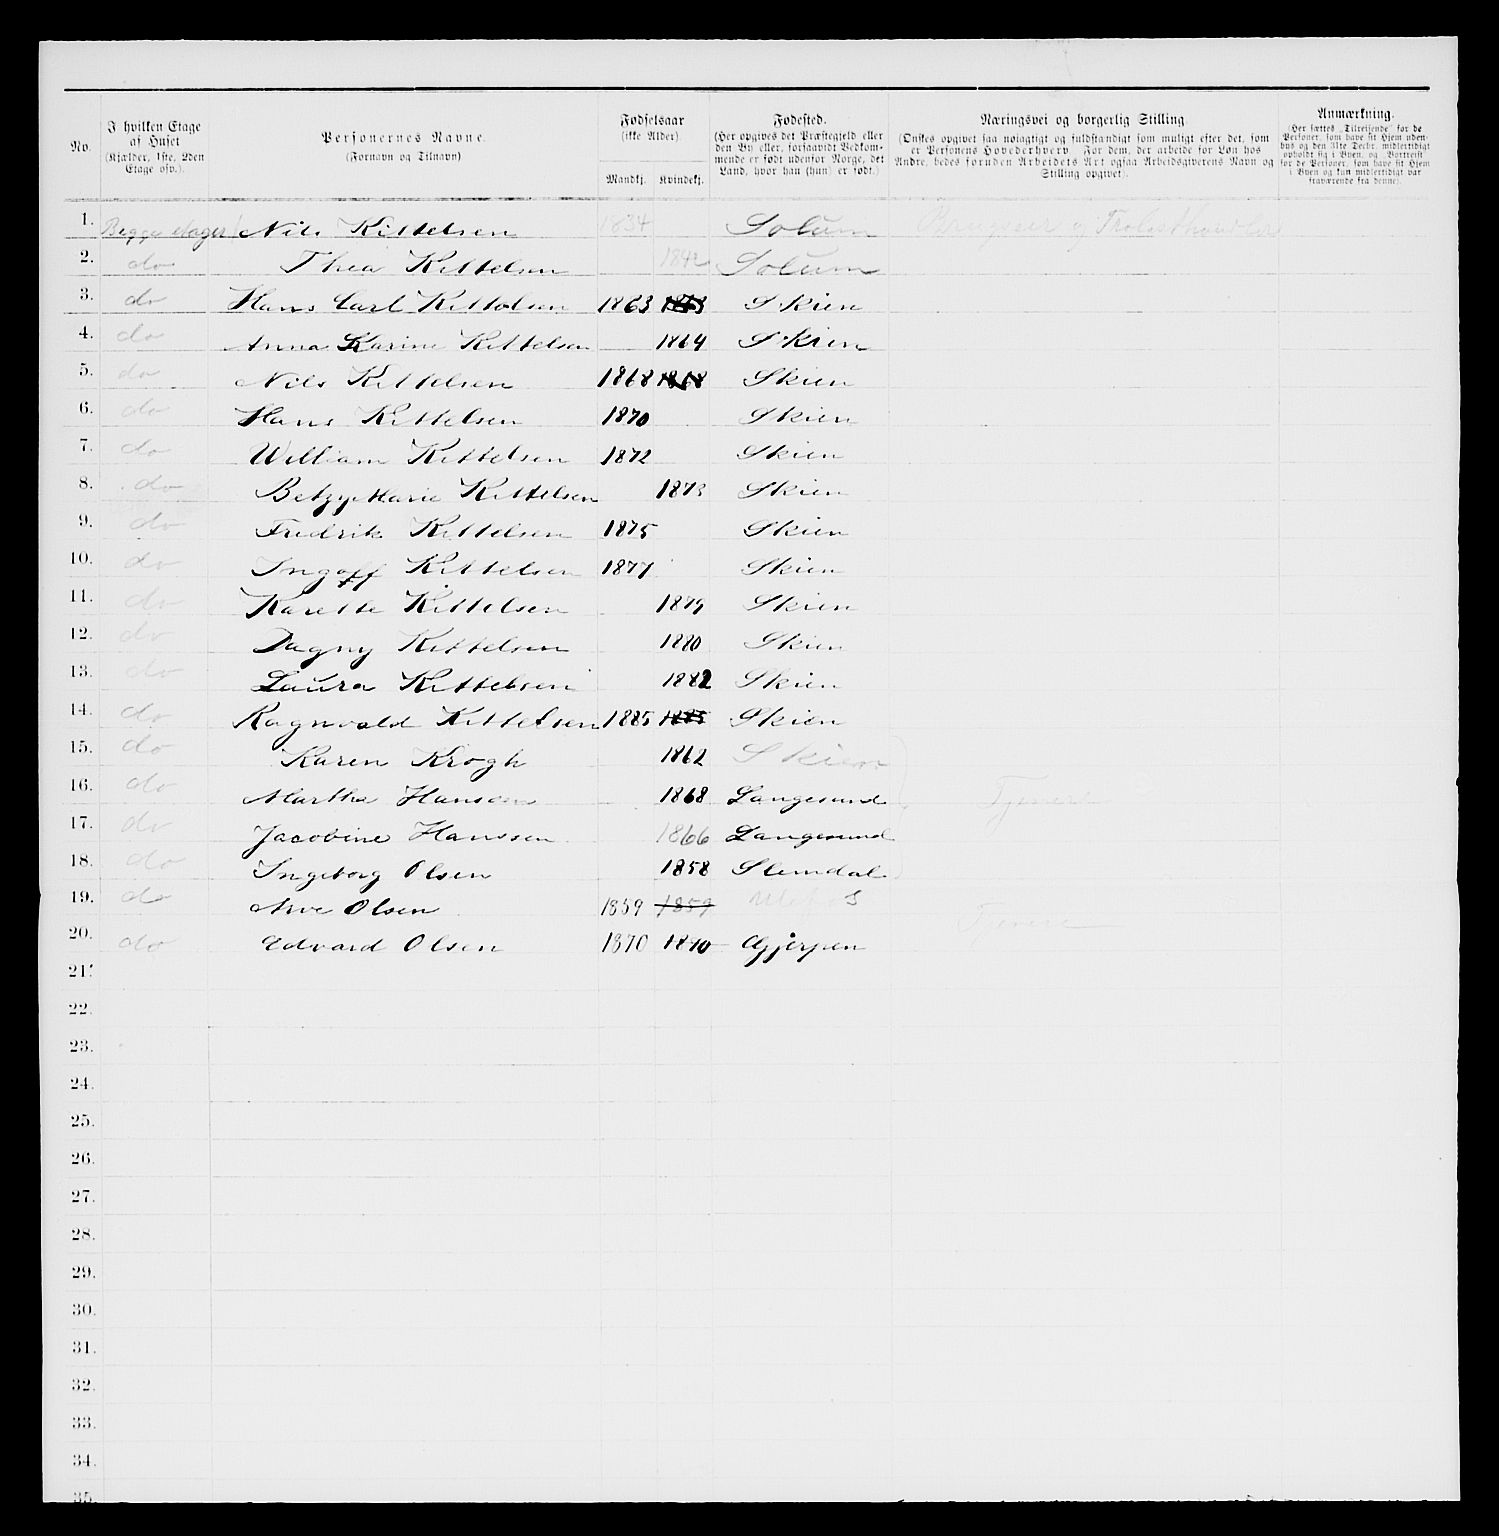 No.
I hvilken Etage af Huset (Kjælder, 1ste, 2den Etage osv.).
Personernes Navne. (Fornavn og Tilnavn)
Fødselsaar (ikke Alder)
Mandkj. Kvindekj.
Fødested. (Her opgives det Præstegjeld eller den By eller, forsaavidt Vedkommende er født udenfor Norge, det Land, hvor han (hun) er født.)
Næringsvei og borgerlig Stilling. (Ønskes opgivet saa nøiagtigt og fuldstændigt som muligt efter det, som er Personens Hovederhverv For dem, der arbeide for Løn hos Andre, bedes foruden Arbeidets Art ogsaa Arbeidsgiverens Navn og Stilling opgivet).
Anmærkning. (Her sættes „Tilreisende" for de Personer, som have sit Hjem udenbys og den 31te Decbr. midlertidigt opholdt sig i Byen, og „Bortreist" for de Personer, som have sit Hjem i Byen og kun midlertidigt var fraværende fra denne).
1. Begge etager Nils Kittelsen 1834 Solum Brugseier og Trælasthandler
2. do Thea Kittelsen 1842 Solum
3. do Hans Carl Kittelsen 1863 1863 Skien
4. do Anna Karine Kittelsen 1864 Skien
5. do Nils Kittelsen 1868 1868 Skien
6. do Hans Kittelsen 1870 Skien
7. do William Kittelsen 1872 Skien
8. do Betzy Marie Kittelsen 1873 Skien
9. do Fredrik Kittelsen 1875 Skien
10. do Ingolf Kittelsen 1877 Skien
11. do Karette Kittelsen 1879 Skien
12. do Dagny Kittelsen 1880 Skien
13. do Laura Kittelsen 1882 Skien
14. do Ragnvald Kittelsen 1885 1885 Skien
15. do Karen Krogh 1862 Skien
16. do Marthe Hansen 1868 Langesund Tjenere
17. do Jacobine Hanssen 1866 Langesund
18. do Ingeborg Olsen 1858 Slemdal
19. do Arve Olsen 1859 1859 Tjenere
20. do Edvard Olsen 1870 1870 Gjerpen
21.
22.
23.
24.
25.
26.
27.
28.
29.
30.
31.
32.
33.
34.
35.